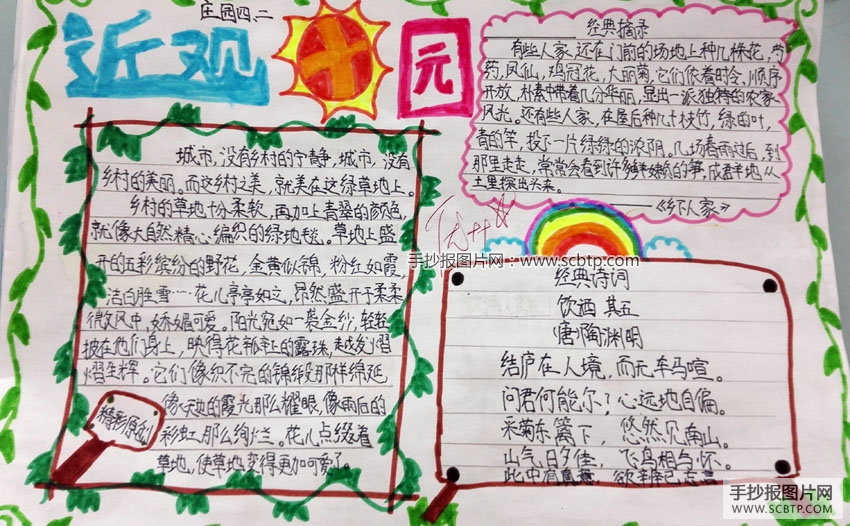 庄园四、二
近观田园
经典摘录
有些人家,还在门前的场地上种几株花,芍
药,凤仙,鸡冠花,大丽菊,它们依着时令,顺序
开放,朴素中带着几分华丽,显出一派独特的农家
风光。还有些人家,在屋后种几十枝竹,绿的叶,
青的竿,投下一片绿绿的浓阴。几场春雨过后,到
那里走走,常常会看到许多鲜嫩的笋,成群地从
土里探出头来。
——《乡下人家》
城市,没有乡村的宁静,城市,没有
乡村的美丽。而这乡村之美,就美在这绿草地上。
乡村的草地十分柔软,再加上青翠的颜色,
就像大自然精心编织的绿地毯。草地上盛
开的五彩缤纷的野花,金黄似锦,粉红如霞,
洁白胜雪……花儿亭亭如立,昂然盛开于柔柔
微风中,娇媚可爱。阳光宛如一袭金纱,轻轻
披在他们身上,映得花瓣上的露珠,越发熠
熠生辉。它们像织不完的锦缎那样绵延
像天边的霞光那么耀眼,像雨后的
彩虹那么绚烂。花儿点缀着
草地,使草地变得更加可爱了。
精彩原创
优++
手抄报图片网:www.scbtp.com
经典诗词
饮酒 其五
(唐)陶渊明
结庐在人境,而无车马喧。
问君何能尔?心远地自偏。
采菊东篱下,悠然见南山。
山气日夕佳,飞鸟相与怀。
此中有真意,欲辨已忘言
手抄报图片网
WWW.SCBTP.COM